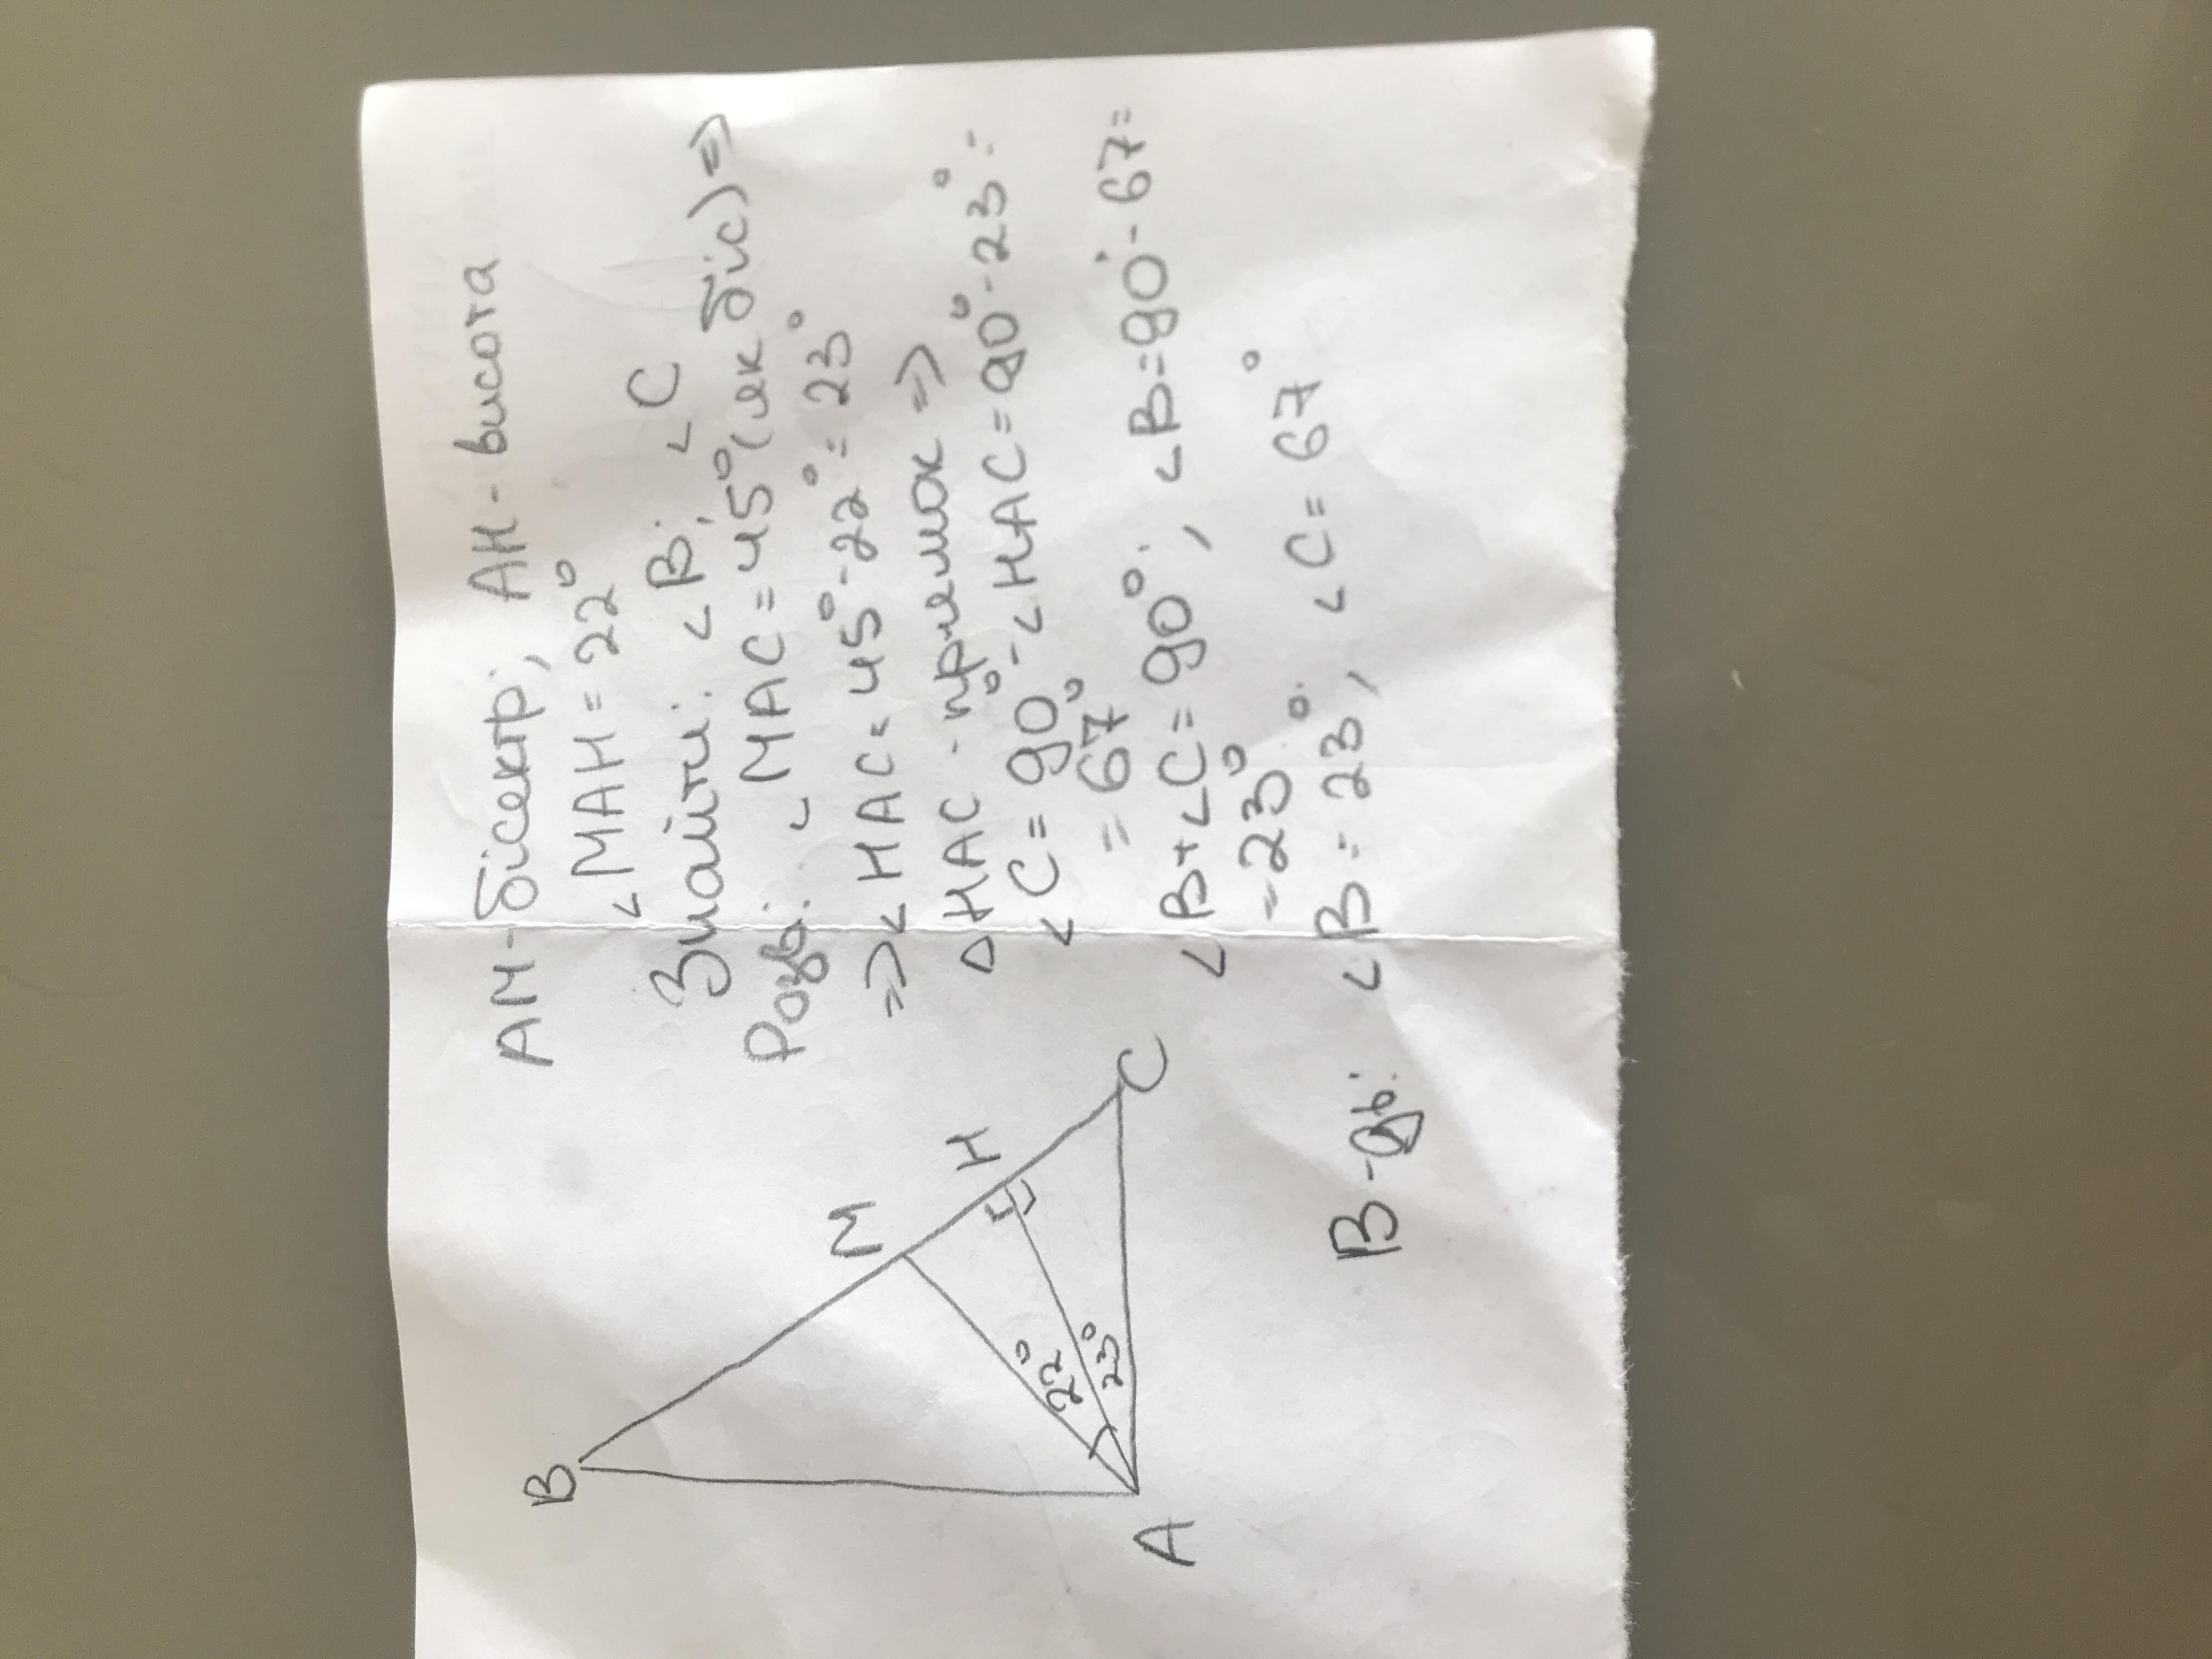 AM-бісектр; AH-висота
∟MAH=22°
Знайти: ∟B; ∟C
Розв: ∟MAC=45°(як біс)=>
=>∟HAC=45°-22°=23°
△HAC-прямок=>
∟C=90°-∟HAC=90°-23°=
=67°
∟B+∟C=90°; ∟B=90°-67=
=23°
B
M
H
C
22°
23°
A
В-дь: ∟B=23°; ∟C=67°